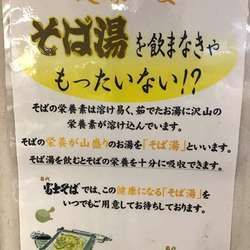 そば湯を飲まなきゃ
もったいない!?
そばの栄養素は溶け易く、茹でたお湯に沢山の
栄養素が溶け込んでいます。
そばの栄養が山盛りのお湯を「そば湯」といいます。
そば湯を飲むとそばの栄養を十分に吸収できます。
名代
富士そばでは、この健康になる「そば湯」を
いつでもご用意してお待ちしております。